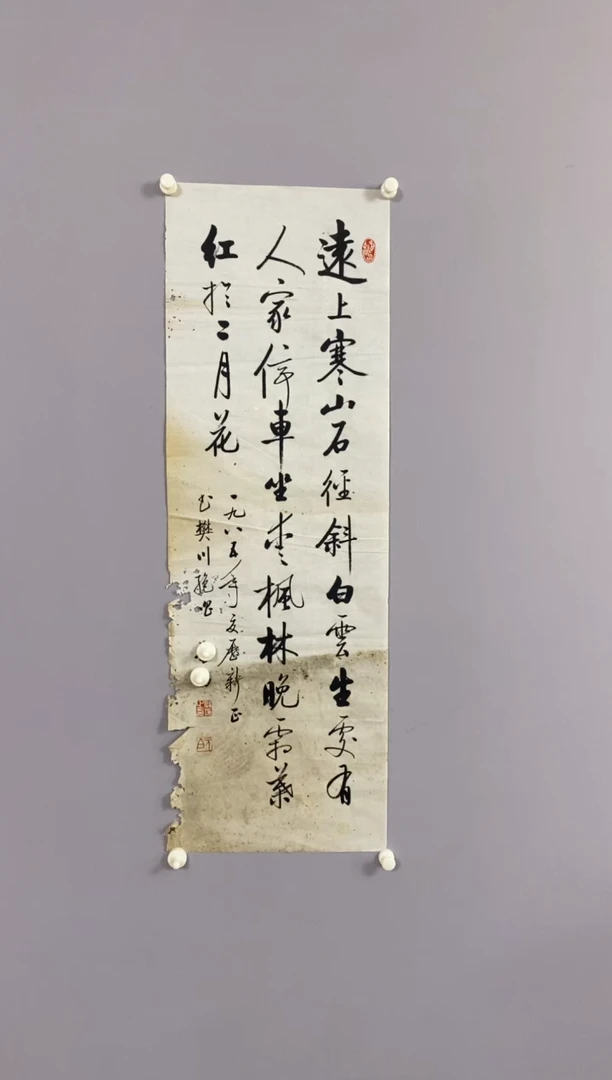 遠上寒山石徑斜白雲生處有
人家停車坐愛楓林晚霜葉
紅於二月花
一九八五年夏曆新正
書樊川絕唱